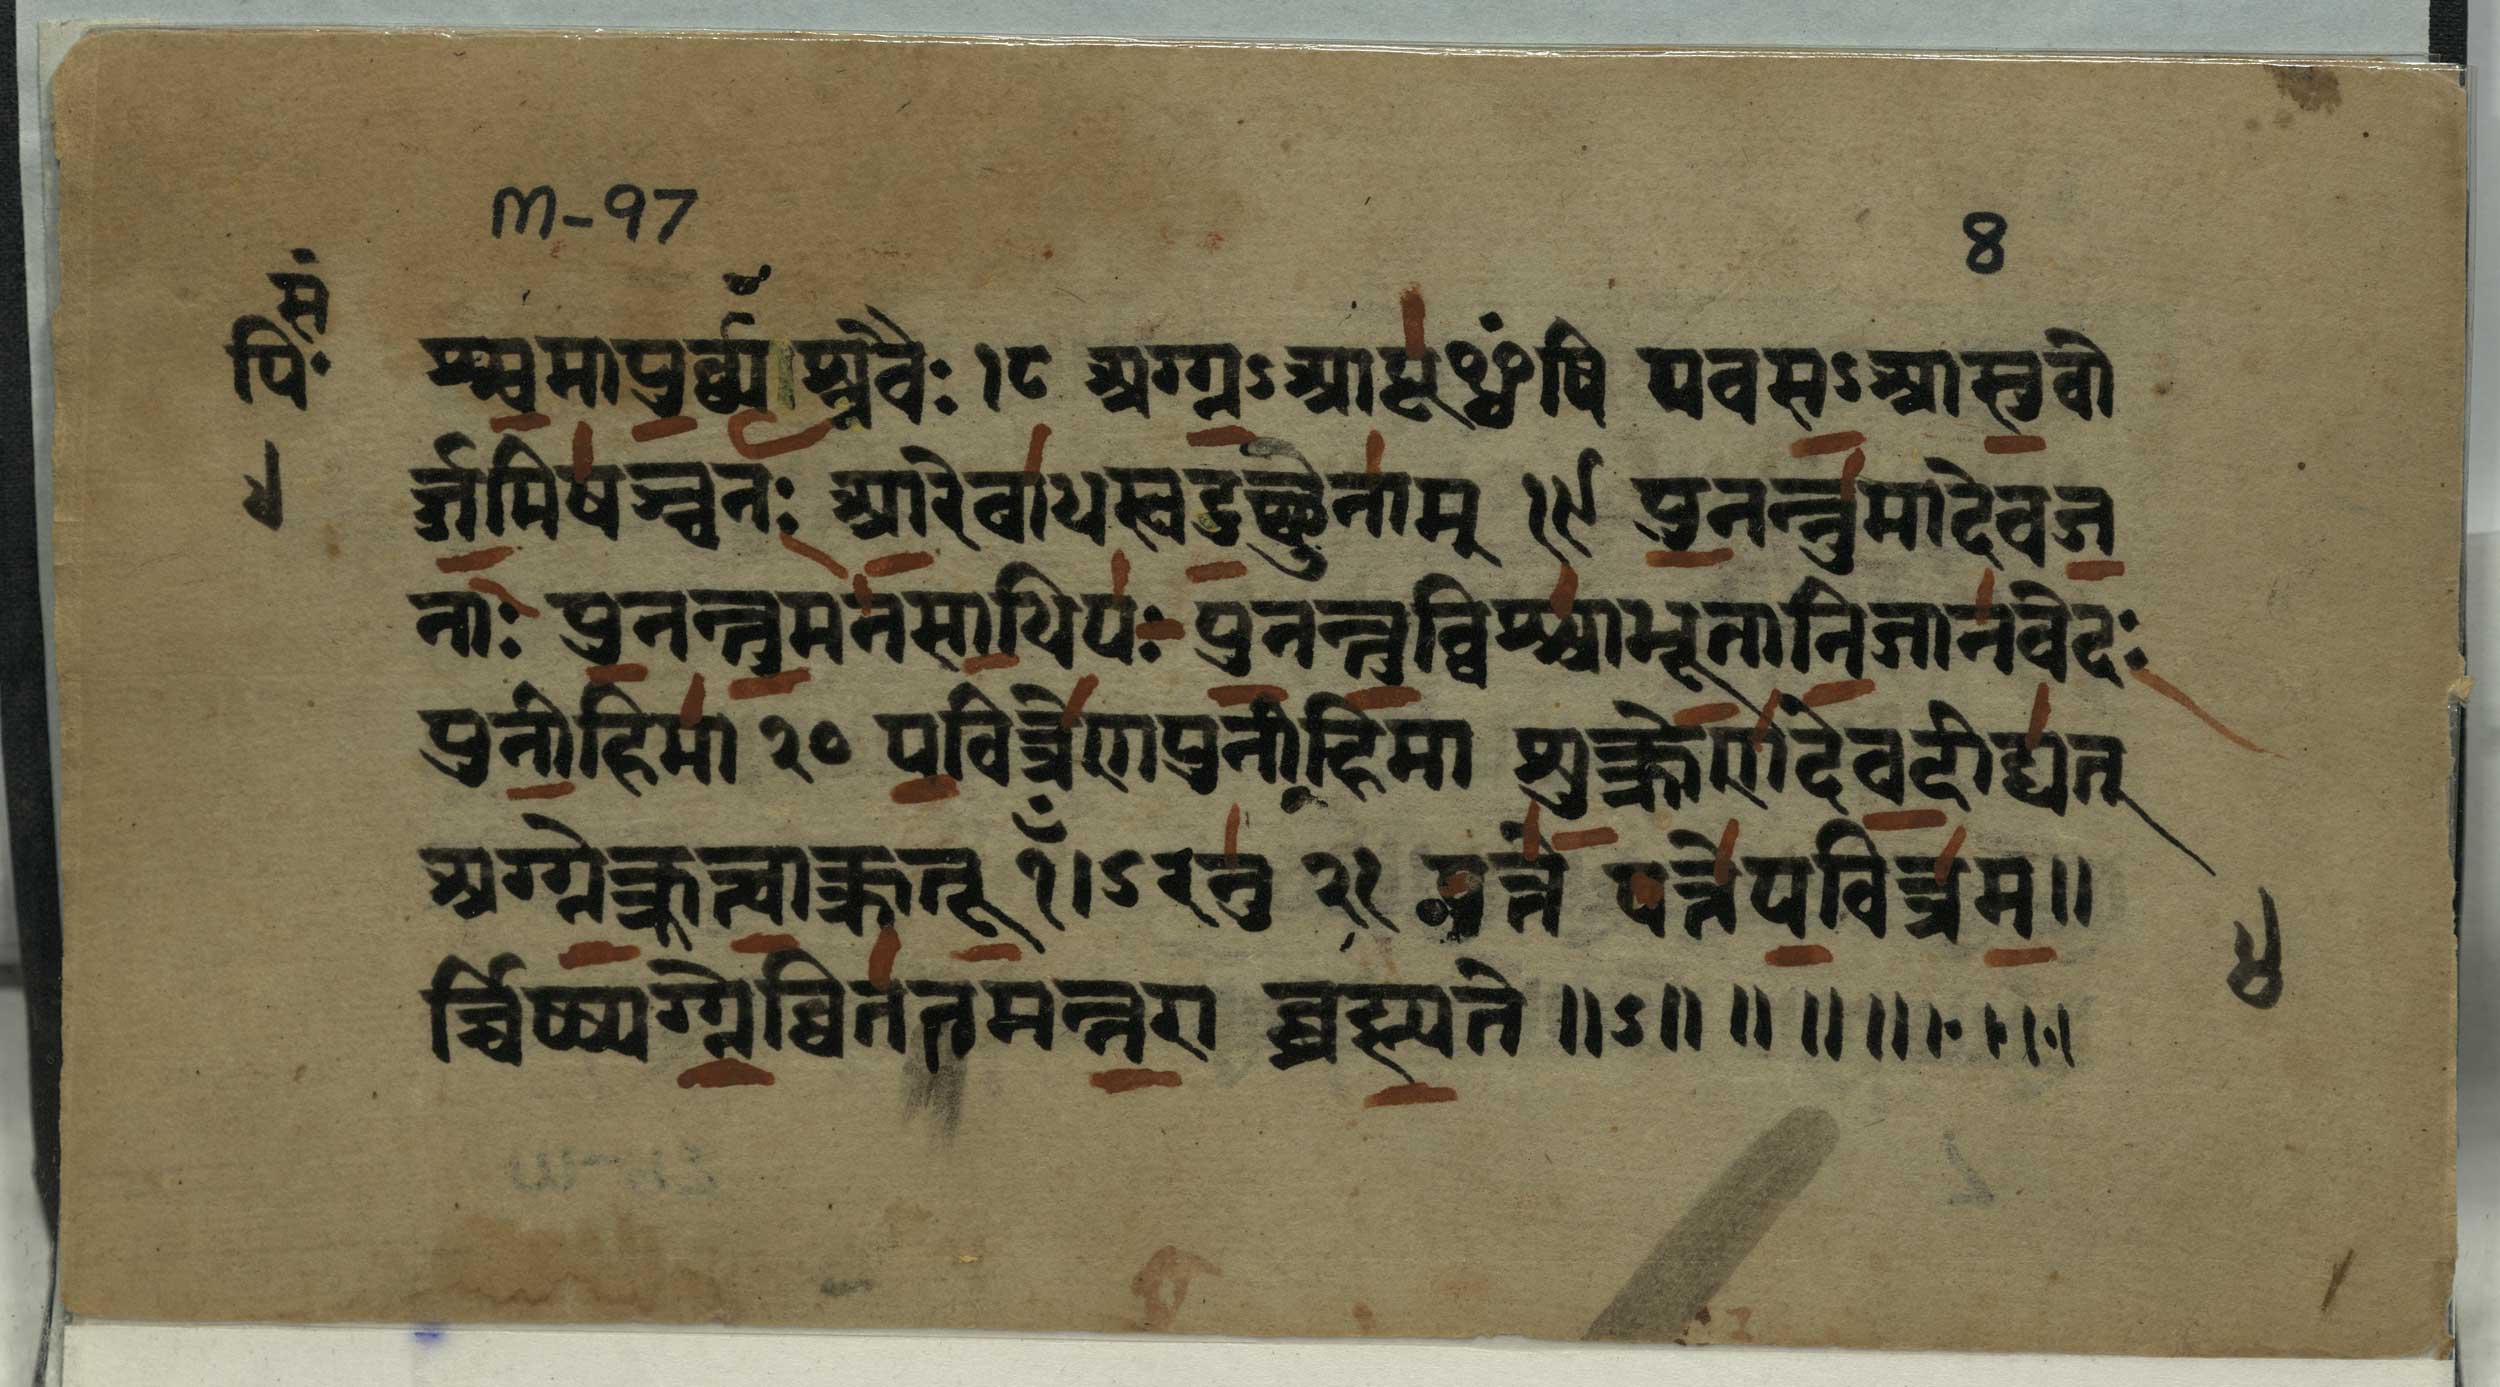 M-97
8
सं
पिः
४
श्श्वमापुर्व्यँ श्श्रवैः १८ अग्ग्नऽआयूᳪंषि पवसऽआसुवो
र्ज्जमिषञ्चनः आरेबाधस्वदुच्छुनाम् १९ पुनन्तुमादेवज
नाः पुनन्तुमनसाधियः पुनन्तुव्विश्श्वाभूतानिजातवेदः
पुनीहिमा २० पवित्रेणपुनीहिमा शुक्क्रेणदेवदीद्यत्
अग्ग्नेक्क्रत्वाक्क्रतूँ१।ऽरनु २१ यत्ते पवित्रम॥
र्च्चिष्ष्यग्ग्नेव्विततमन्तरा ब्ब्रह्म ते ॥ऽ॥ ॥ ॥ ॥
४